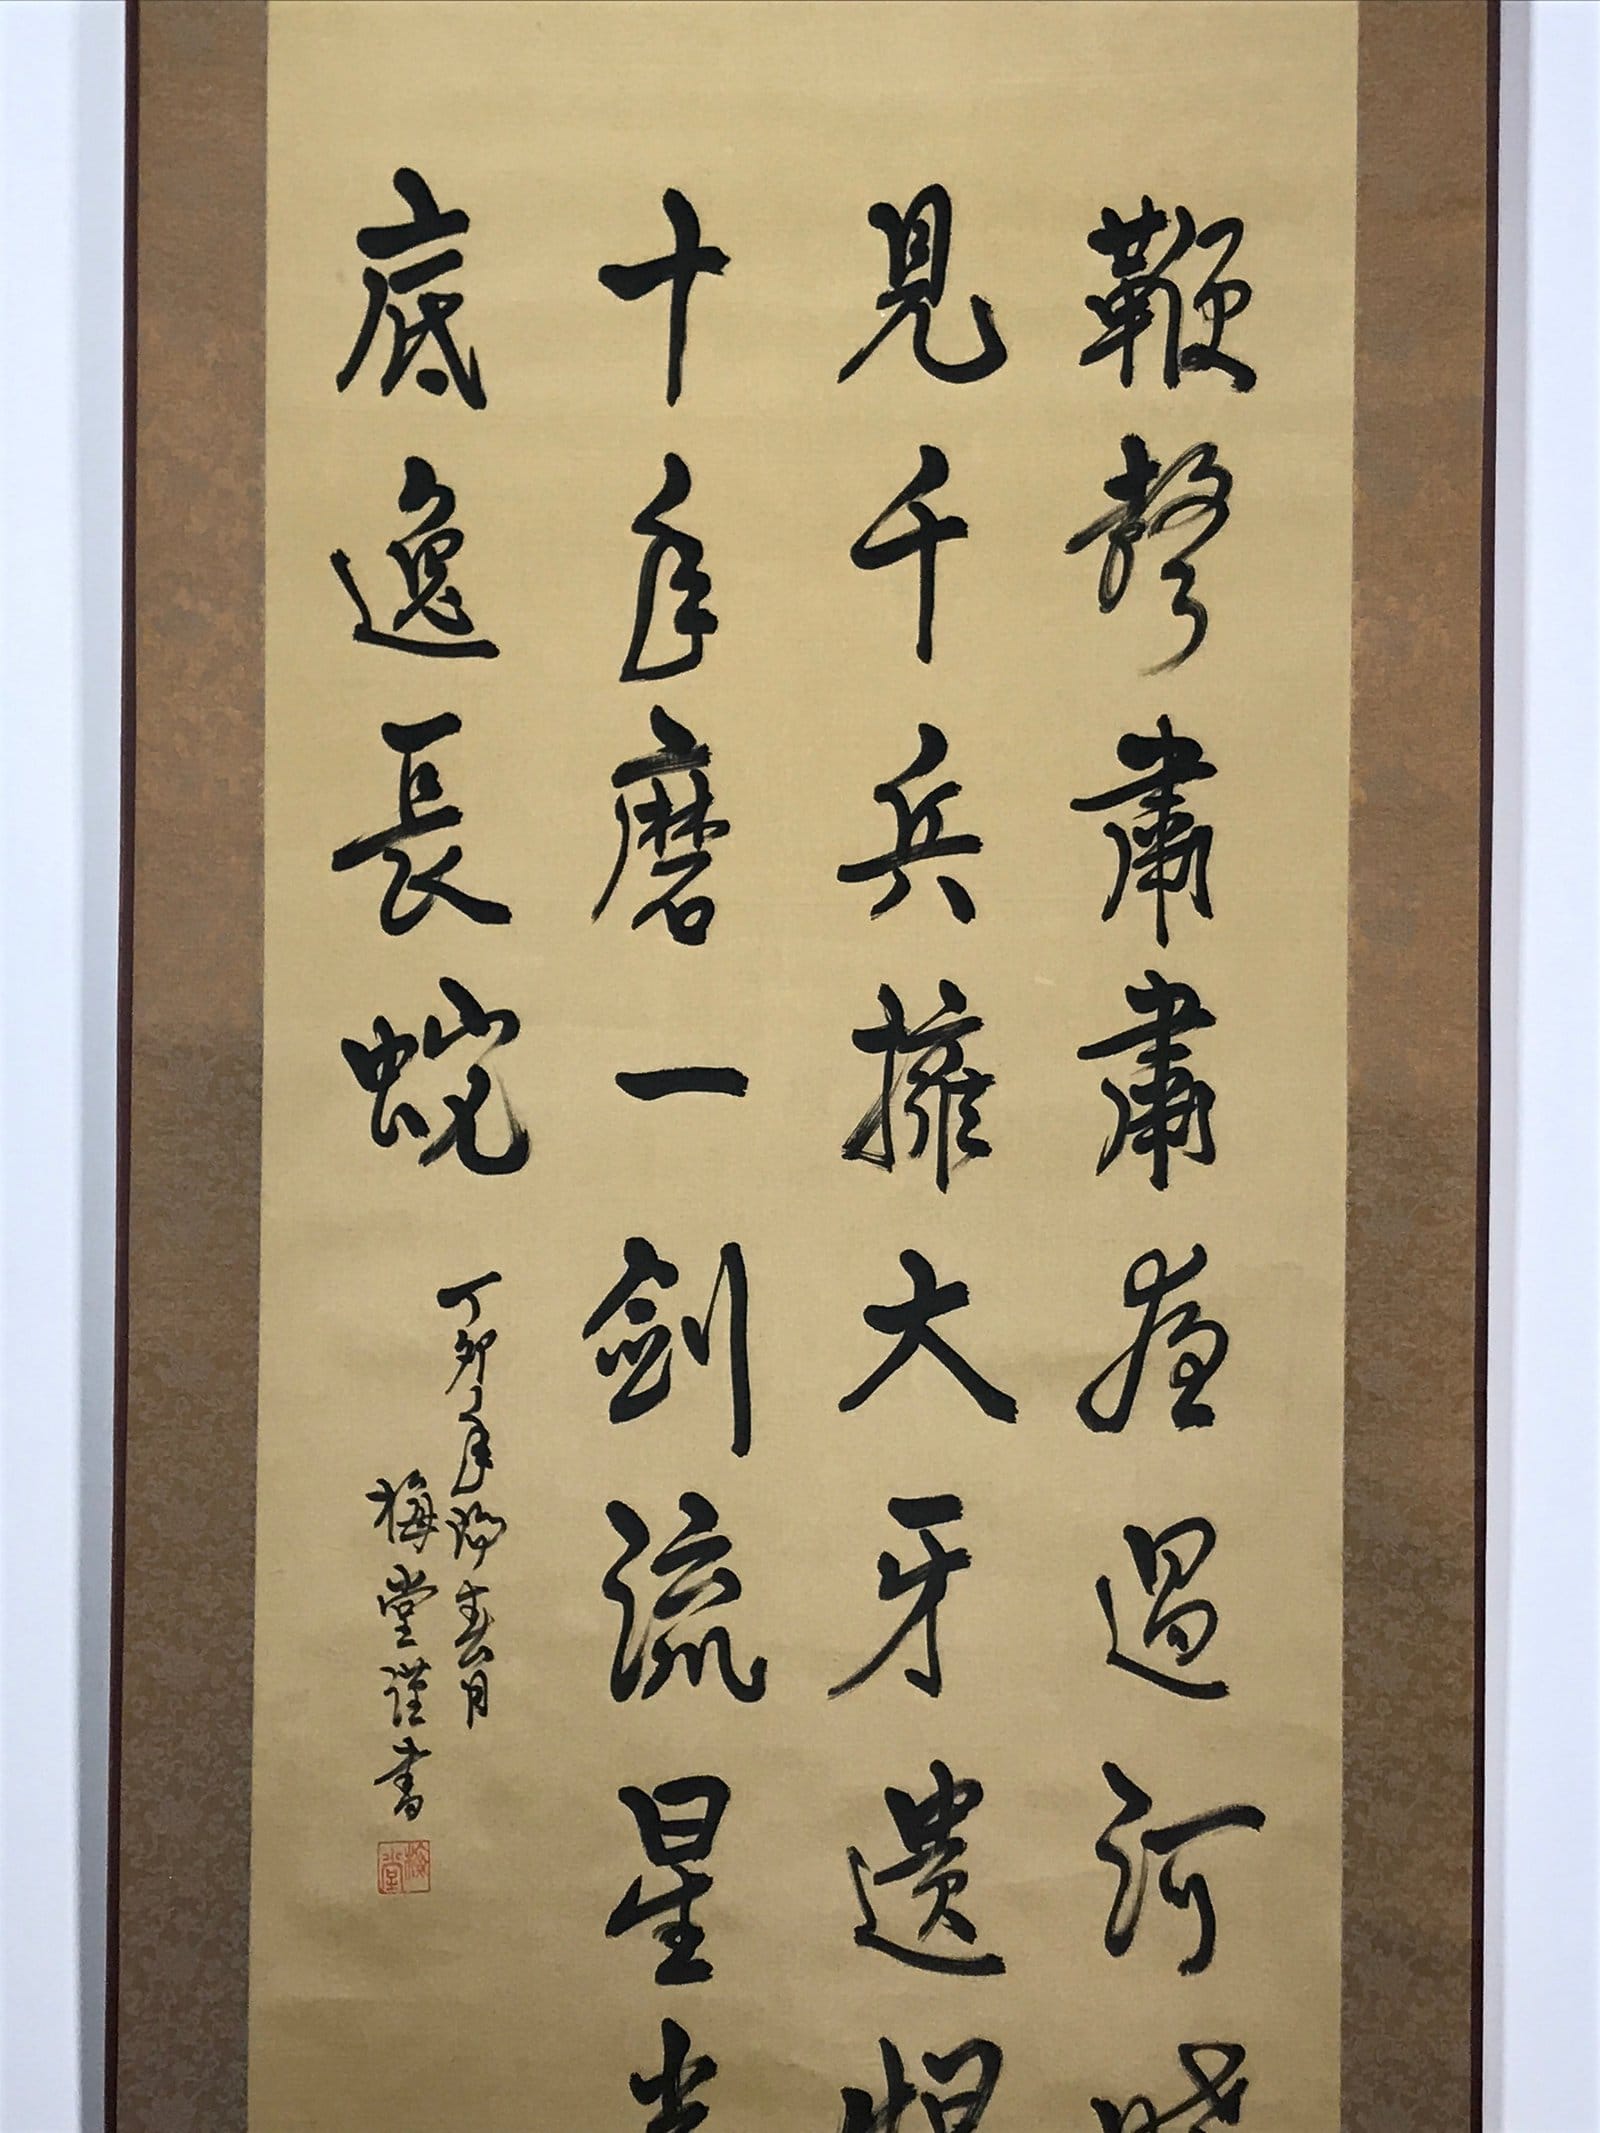 鞭聲肅肅夜過河曉
見千兵擁大牙遺恨
十年磨一劍流星光
底逸長蛇
丁卯年陽春月
梅堂謹書
梅堂